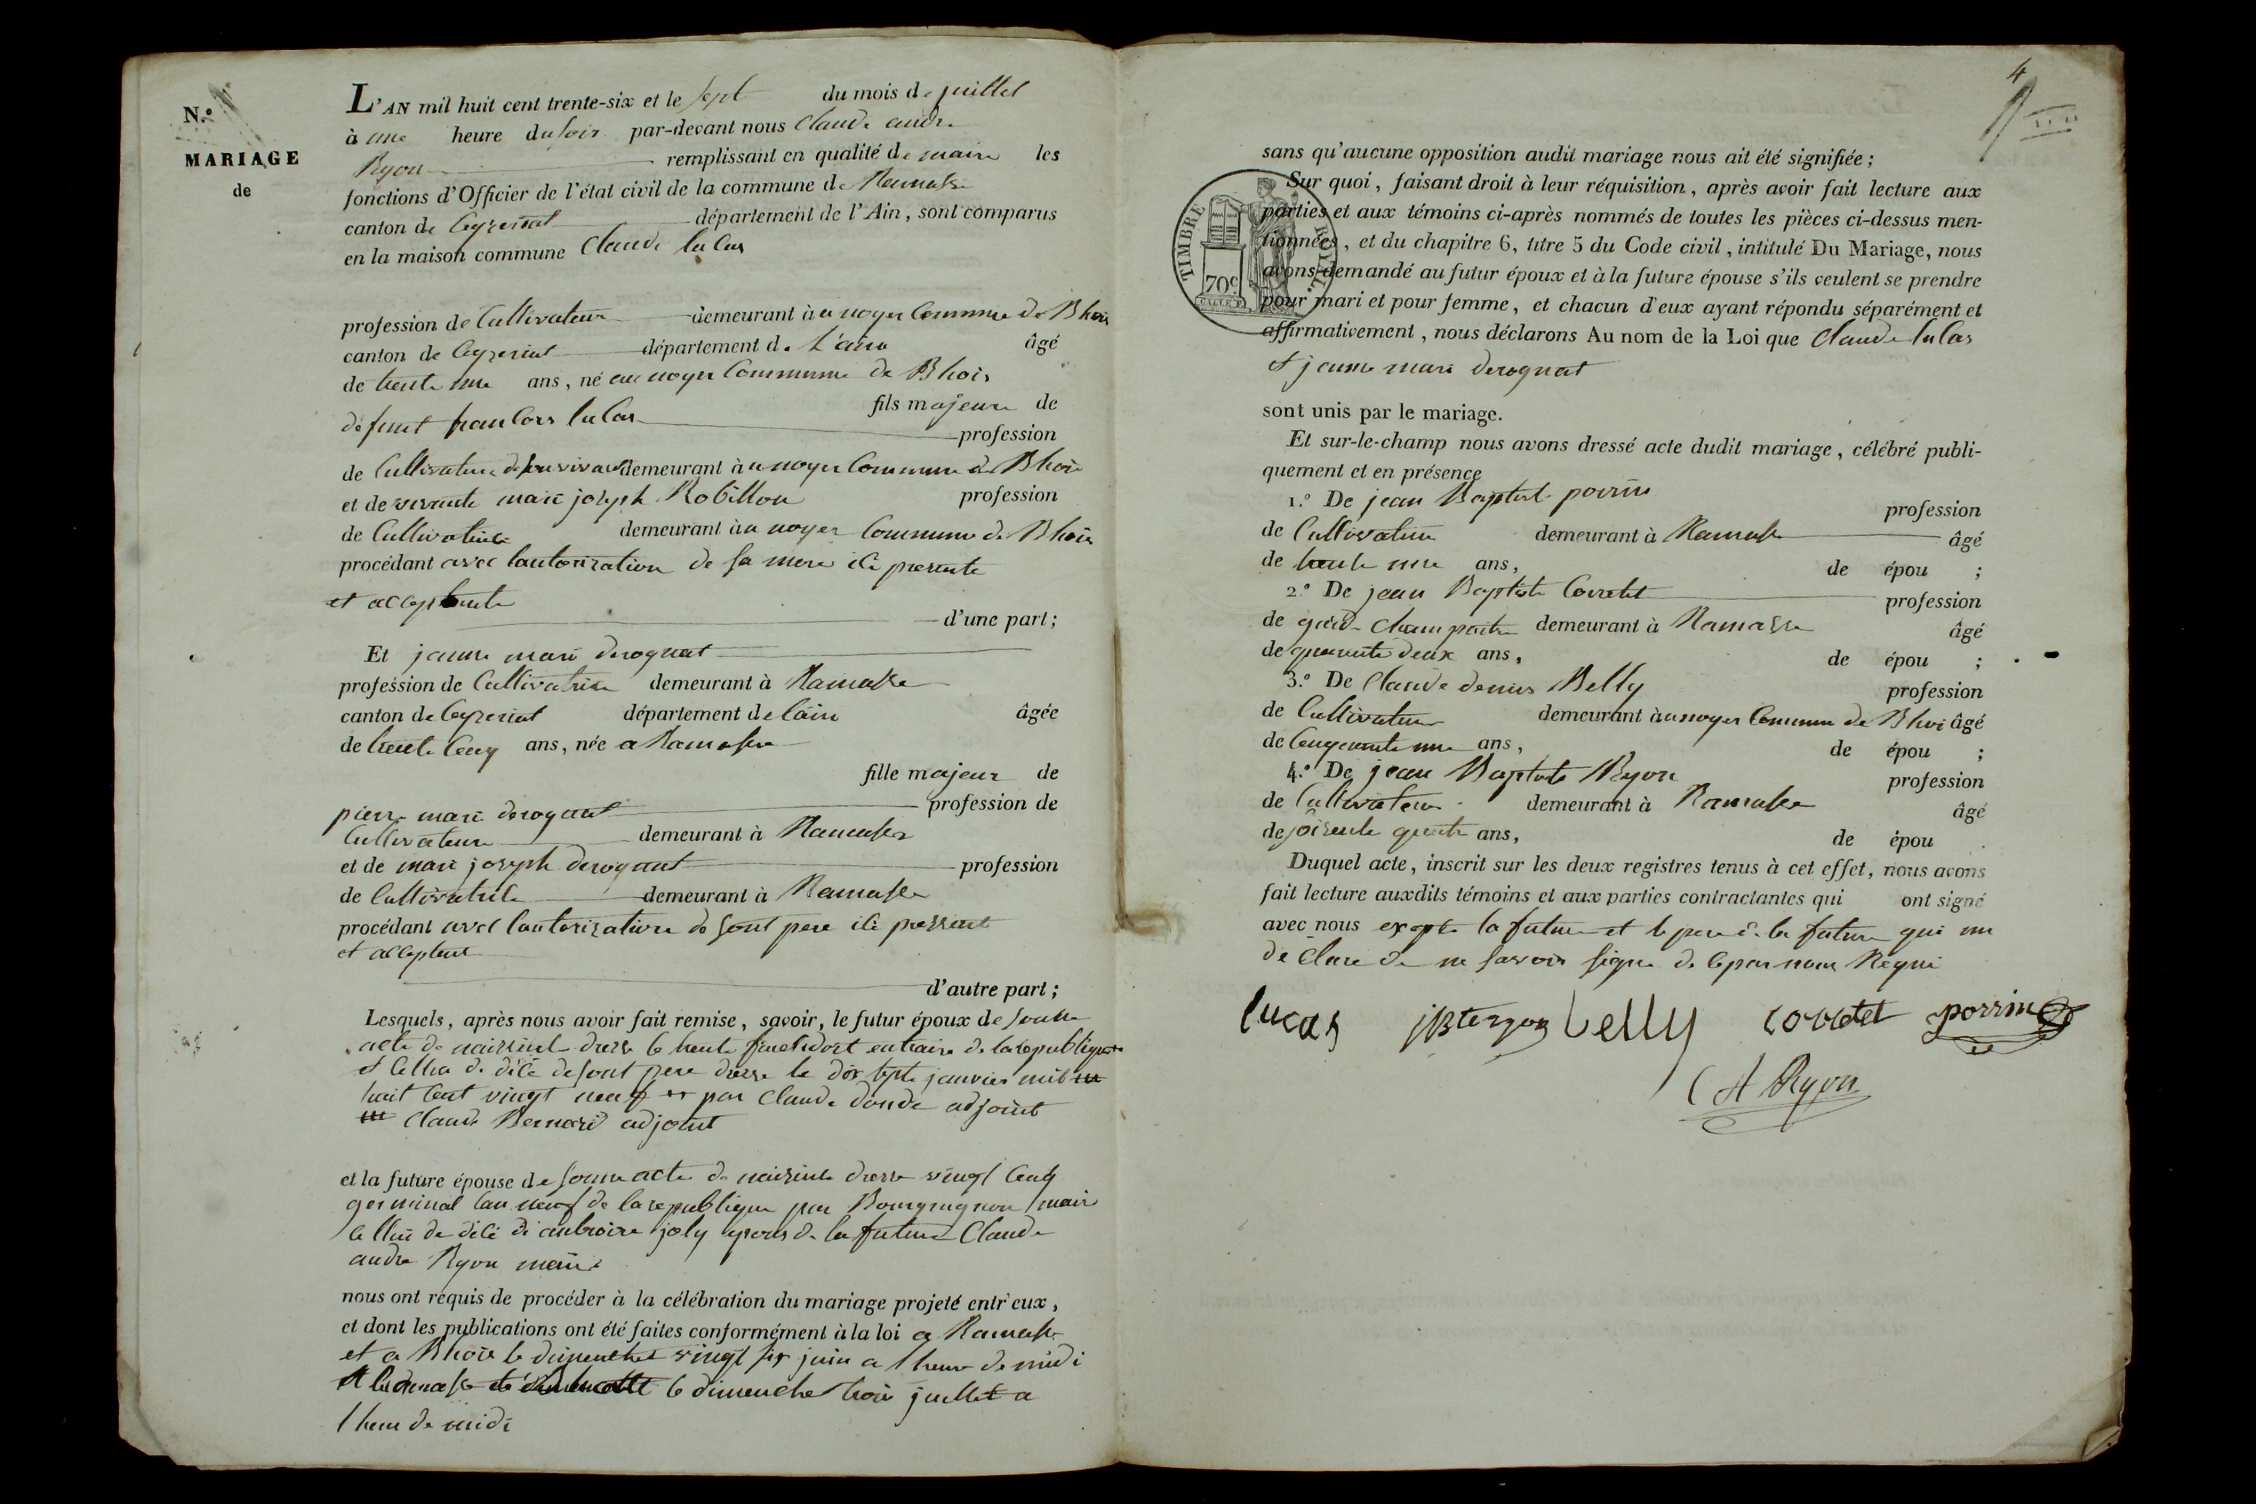 N.°
MARIAGE
de
L'AN mil huit cent trente-six et le sept du mois de juillet
à une heure du soir par-devant nous Claude andre
Ryon remplissant en qualité de maire les
fonctions d'Officier de l'état civil de la commune de Ramasse
canton de Ceyzeriat département de l'Ain, sont comparus
en la maison commune Claude luCas
profession de Cultivateur demeurant à u noyer Commune de Bhois
canton de Ceyzeriat département de L'ain âgé
de trente une ans, né au noyer Commune de Bhois
fils majeur de
défunt franCois luCas profession
de Cultivateur de son vivant demeurant à u noyer Commune de Bhois
et de vivante marie joseph Robillon profession
de Cultivatrice demeurant à u noyer Commune de Bhois
procédant avec lautorization de sa mere iCi presente
et acceptente
d'une part;
Et janne marie derognat
profession de Cultivatrise demeurant à Ramasse
canton de Ceyzeriat département de lain âgée
de trente Cenq ans, née a Ramasse
fille majeur de
pierre marie derognat profession de
Cultivateur demeurant à Ramasse
et de marie joseph derognant profession
de Cultivatrice demeurant à Ramasse
procédant avec lautorization de sont pere iCi pressent
et acceptent
d'autre part;
Lesquels, après nous avoir fait remise, savoir, le futur époux de sont
acte de naissint dresse le trente de la republique
et Cellui de déCé de sont pere dresse le dix septe janvier mil
huit Cent vingt neuf par Claude adjoint
Claude Bernard adjoint
et la future épouse de sonne acte de naissinte dresse vingt Cenq
germinal lan neuf de la republique par Bourgnignon maire
Cellui de déCé di anbroise joly epous de la future Claude
andre Ryon maire
nous ont requis de procéder à la célébration du mariage projeté entr'eux,
et dont les publications ont été faites conformément à la loi a Ramasse
et a Bhois le dimenche vingt six juin a lheure de midi
le dimenche trois juillet a
lheure de midi
4
TIMBRE ROYAL.
70c
sans qu'aucune opposition audit mariage nous ait été signifiée;
Sur quoi, faisant droit à leur réquisition, après avoir fait lecture aux
parties et aux témoins ci-après nommés de toutes les pièces ci-dessus men-
tionnées, et du chapitre 6, titre 5 du Code civil, intitulé Du Mariage, nous
avons demandé au futur époux et à la future épouse s'ils veulent se prendre
pour mari et pour femme, et chacun d'eux ayant répondu séparément et
affirmativement, nous déclarons Au nom de la Loi que Claude luCas
et janne marie derognat
sont unis par le mariage.
Et sur-le-champ nous avons dressé acte dudit mariage, célébré publi-
quement et en présence
1.° De jean Baptiste porrin profession
de Cultivateur demeurant à Ramasse âgé
de trente une ans, de épou ;
2.° De jean Baptiste Corretet profession
de garde Champaitre demeurant à Ramasse âgé
de quarente deux ans, de épou ;
3.° De Claude denis Belly profession
de Cultivateur demeurant à u noyer Commune de Bhoi âgé
de Cenquente une ans, de épou ;
4.° De jean Baptiste Ryon profession
de Cultivateur demeurant à Ramasse âgé
de soisente quatre ans, de épou
Duquel acte, inscrit sur les deux registres tenus à cet effet, nous avons
fait lecture auxdits témoins et aux parties contractantes qui ont signé
avec nous exepte la future et le pere de la future qui on
de Clare de ne savoir signe de Ce par nous Requi
lucas jBteryon belly corretet porrin
C A Ryon